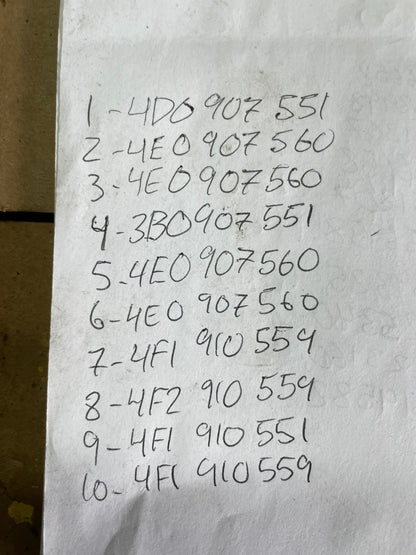 1-4D0 907 551
2-4E0 907 560
3-4E0 907560
4-3B0907 551
5-4E0 907560
6-4E0 907 560
7-4F1 910 559
8-4F2 910 559
9-4F1 910 551
10-4F1 910 559